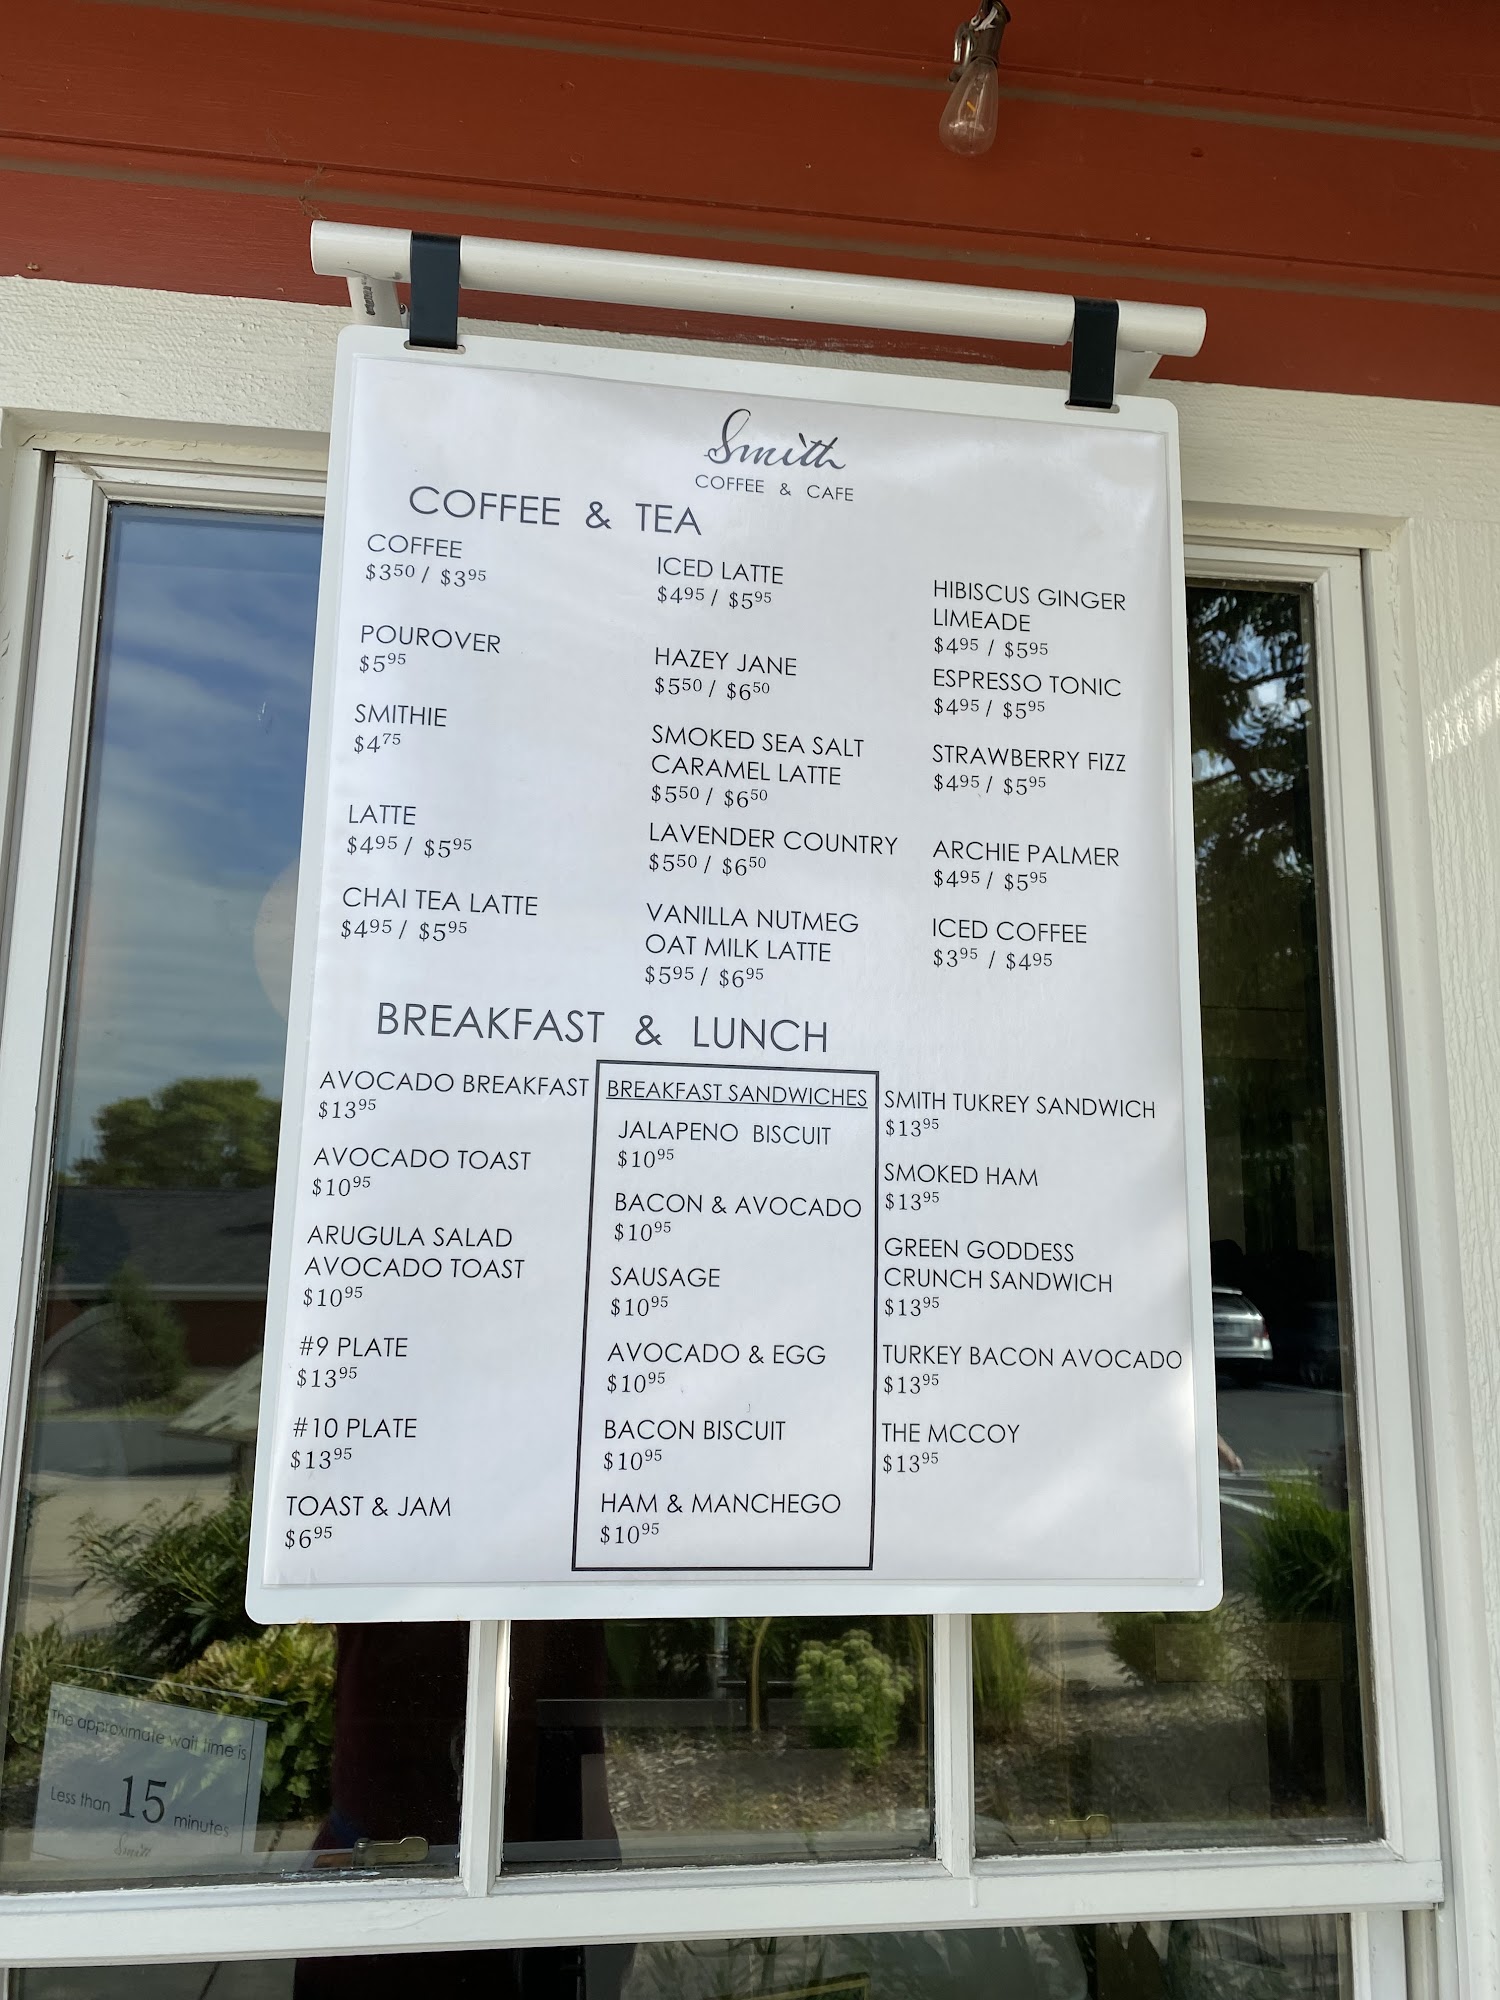 Smith
COFFEE & CAFE
COFFEE & TEA
COFFEE
$3⁵⁰ / $3⁹⁵
POUROVER
$5⁹⁵
SMITHIE
$4⁷⁵
LATTE
$4⁹⁵ / $5⁹⁵
CHAI TEA LATTE
$4⁹⁵ / $5⁹⁵
ICED LATTE
$4⁹⁵ / $5⁹⁵
HAZEY JANE
$5⁵⁰ / $6⁵⁰
SMOKED SEA SALT
CARAMEL LATTE
$5⁵⁰ / $6⁵⁰
LAVENDER COUNTRY
$5⁵⁰ / $6⁵⁰
VANILLA NUTMEG
OAT MILK LATTE
$5⁹⁵ / $6⁹⁵
HIBISCUS GINGER
LIMEADE
$4⁹⁵ / $5⁹⁵
ESPRESSO TONIC
$4⁹⁵ / $5⁹⁵
STRAWBERRY FIZZ
$4⁹⁵ / $5⁹⁵
ARCHIE PALMER
$4⁹⁵ / $5⁹⁵
ICED COFFEE
$3⁹⁵ / $4⁹⁵
BREAKFAST & LUNCH
AVOCADO BREAKFAST
$13⁹⁵
AVOCADO TOAST
$10⁹⁵
ARUGULA SALAD
AVOCADO TOAST
$10⁹⁵
#9 PLATE
$13⁹⁵
#10 PLATE
$13⁹⁵
TOAST & JAM
$6⁹⁵
BREAKFAST SANDWICHES
JALAPENO BISCUIT
$10⁹⁵
BACON & AVOCADO
$10⁹⁵
SAUSAGE
$10⁹⁵
AVOCADO & EGG
$10⁹⁵
BACON BISCUIT
$10⁹⁵
HAM & MANCHEGO
$10⁹⁵
SMITH TUKREY SANDWICH
$13⁹⁵
SMOKED HAM
$13⁹⁵
GREEN GODDESS
CRUNCH SANDWICH
$13⁹⁵
TURKEY BACON AVOCADO
$13⁹⁵
THE MCCOY
$13⁹⁵
The approximate wait time is
Less than 15 minutes
Smith